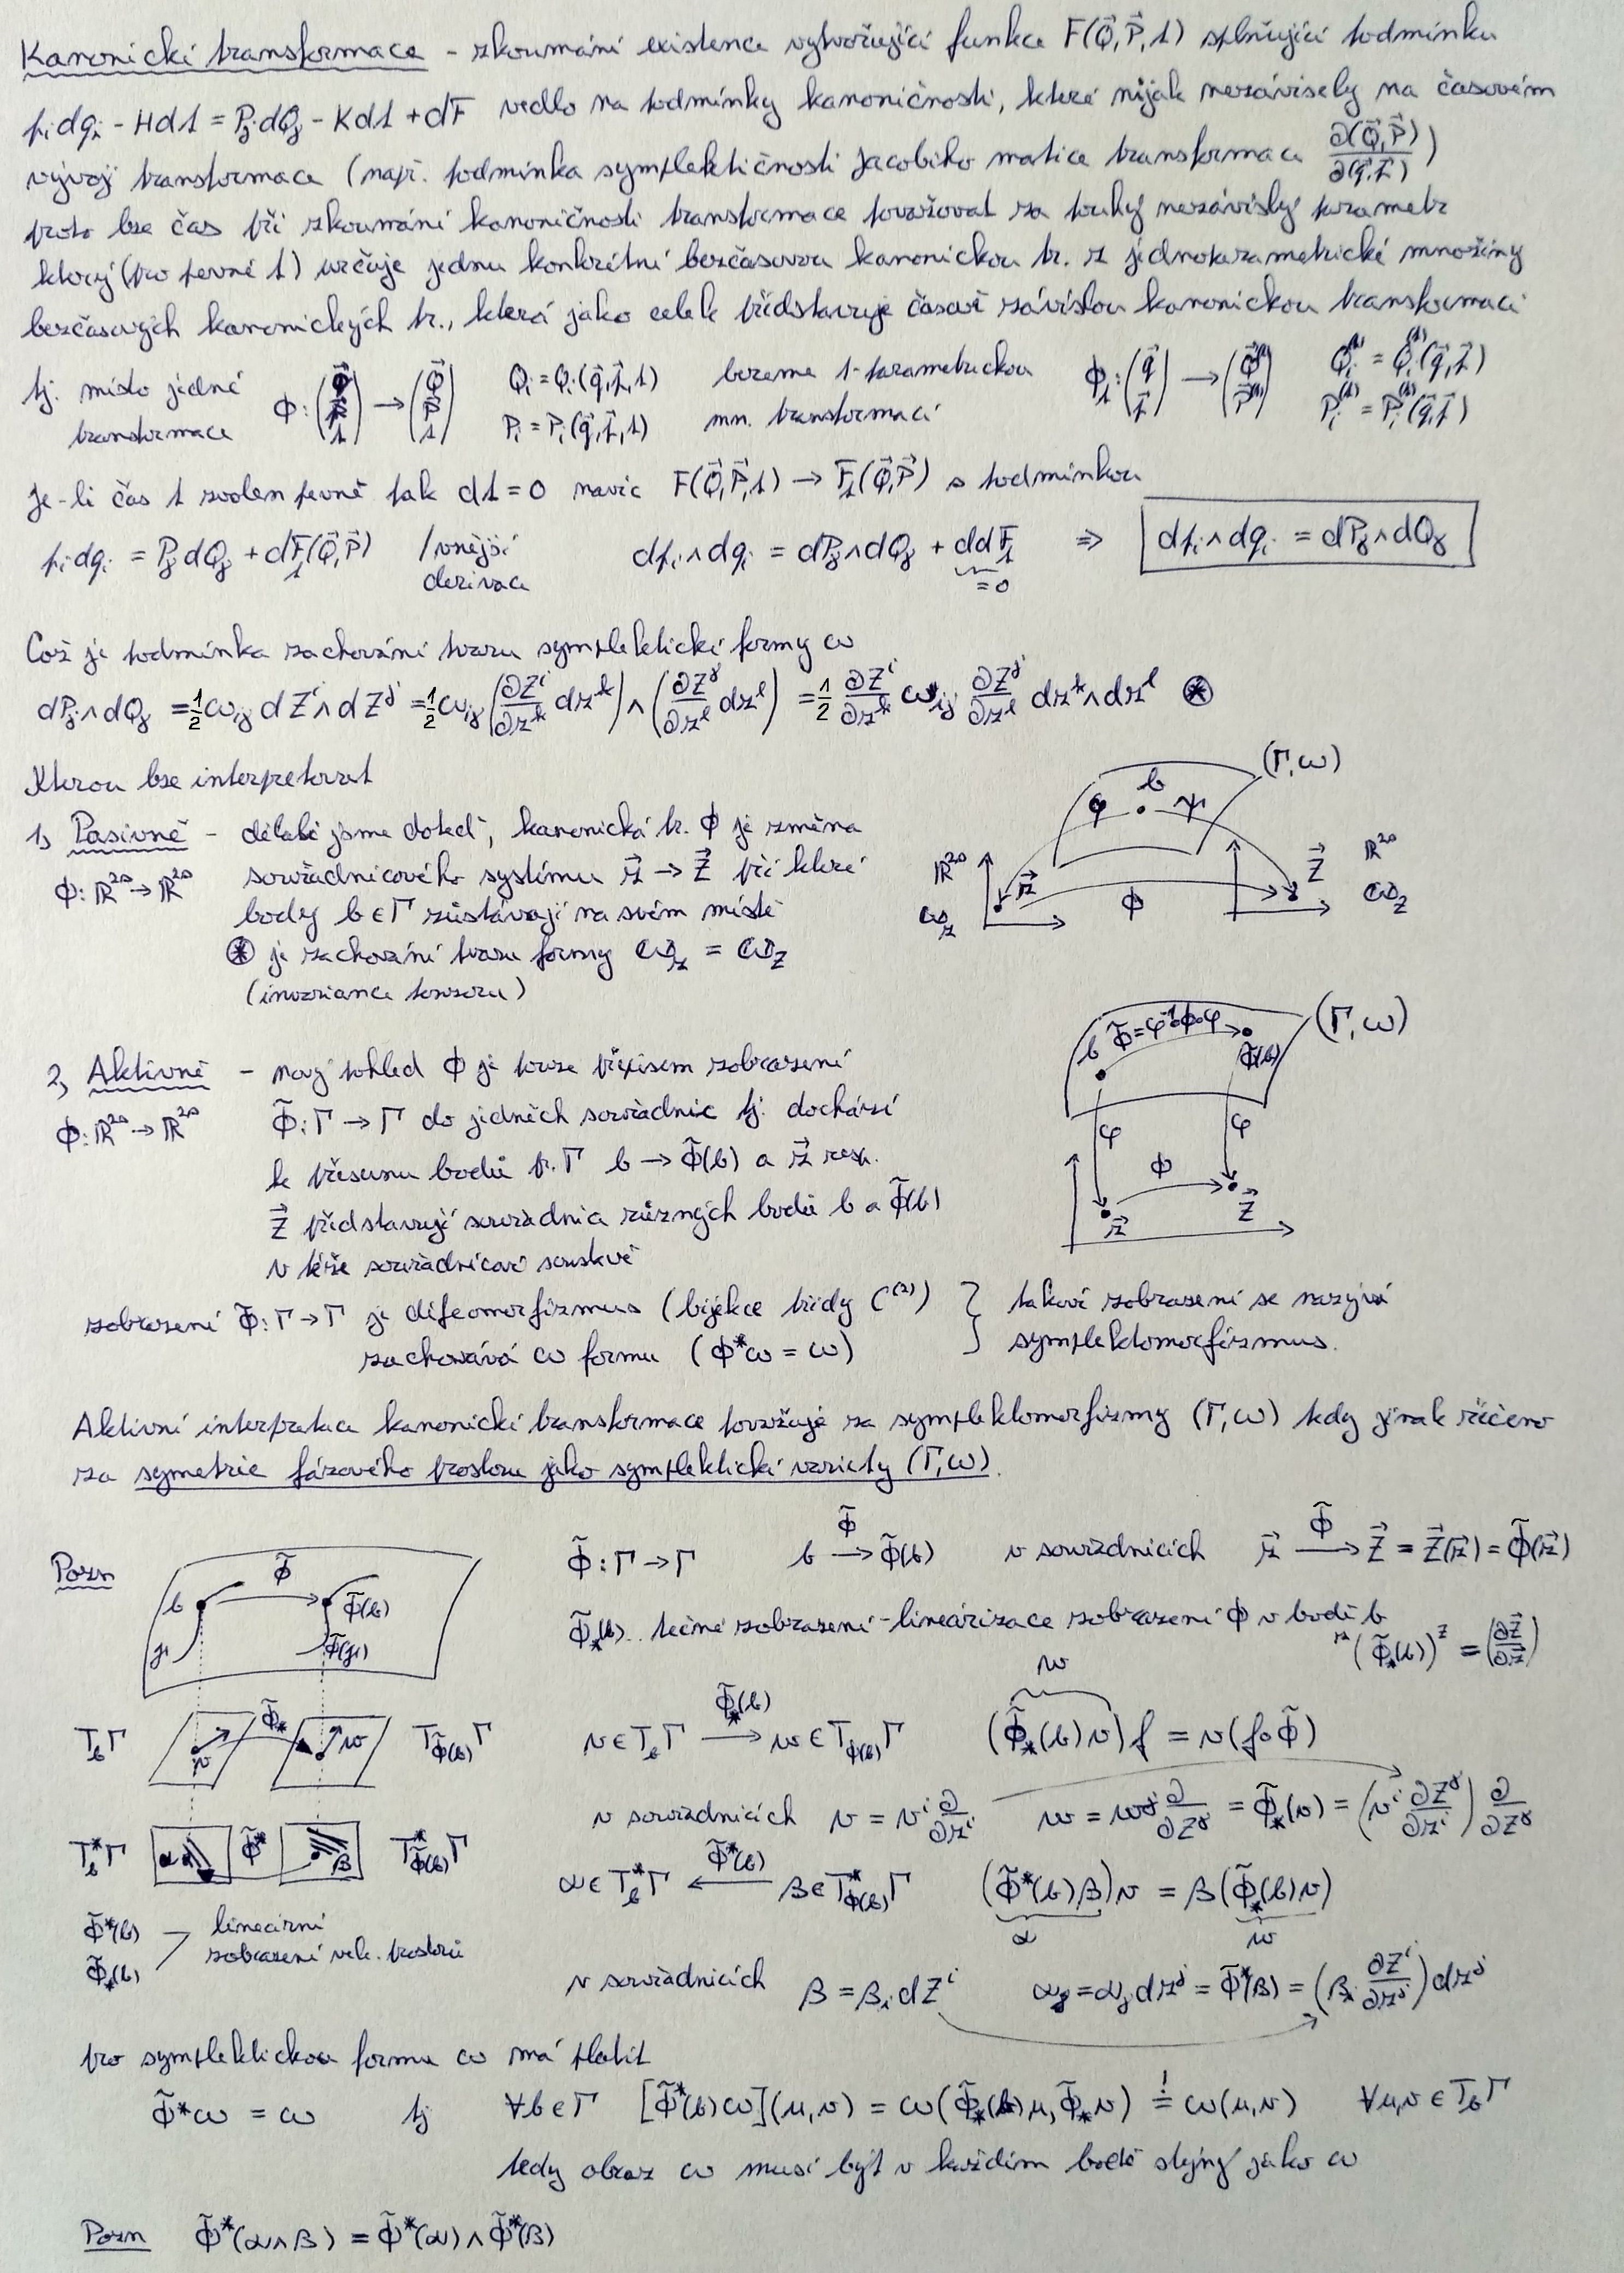 Kanonické transformace - zkoumání existence vytvořující funkce F(Q⃗,P⃗,t) splňující podmínku
pᵢdqᵢ - Hdt = PⱼdQⱼ - Kdt + dF vedlo na podmínky kanoničnosti, které nijak nezávisely na časovém
vývoji transformace (např. podmínka symplektičnosti Jacobiho matice transformace ∂(Q⃗,P⃗)/∂(q⃗,p⃗))
proto lze čas při zkoumání kanoničnosti transformace považovat za pouhý nezávislý parametr
který (pro pevné t) určuje jednu konkrétní bezčasovou kanonickou tr. z jednoparametrické množiny
bezčasových kanonických tr., která jako celek představuje časově závislou kanonickou transformaci
tj. místo jedné transformace Φ: (q⃗ p⃗ t) → (Q⃗ P⃗ t) Qᵢ = Qᵢ(q⃗,p⃗,t) bereme 1-parametrickou Φₜ: (q⃗ p⃗) → (Q⃗⁽ᵗ⁾ P⃗⁽ᵗ⁾) Qᵢ⁽ᵗ⁾ = Qᵢ⁽ᵗ⁾(q⃗,p⃗)
Pᵢ = Pᵢ(q⃗,p⃗,t) mn. transformací Pᵢ⁽ᵗ⁾ = Pᵢ⁽ᵗ⁾(q⃗,p⃗)
Je-li čas t zvolen pevně pak dt = 0 navíc F(Q⃗,P⃗,t) → Fₜ(Q⃗,P⃗) s podmínkou
pᵢdqᵢ = PⱼdQⱼ + dFₜ(Q⃗,P⃗) / vnější derivace dpᵢ∧dqᵢ = dPⱼ∧dQⱼ + ddFₜ ⇒ dpᵢ∧dqᵢ = dPⱼ∧dQⱼ
= 0
Což je podmínka zachování tvaru symplektické formy ω
dPⱼ∧dQⱼ = ½ωᵢⱼ dZⁱ∧dZʲ = ½ωᵢⱼ(∂Zⁱ/∂zᵏ dzᵏ)∧(∂Zʲ/∂zˡ dzˡ) = ½ ∂Zⁱ/∂zᵏ ωᵢⱼ ∂Zʲ/∂zˡ dzᵏ∧dzˡ ⊛
Kterou lze interpretovat
1) Pasivně - dělali jsme doteď, kanonická tr. Φ je změna
Φ: ℝ²ˢ→ℝ²ˢ souřadnicového systému z⃗ → Z⃗ při které
body b∈Γ zůstávají na svém místě
⊛ je zachování tvaru formy ω_z = ω_Z
(invariance tenzoru)
(Γ,ω)
φ b ψ
ℝ²ˢ z⃗ Z⃗ ℝ²ˢ
ω_z Φ ω_Z
2) Aktivně - nový pohled Φ je pouze přepisem zobrazení
Φ: ℝ²ˢ→ℝ²ˢ Φ̃: Γ→Γ do jedněch souřadnic tj. dochází
k přesunu bodů p. Γ b → Φ̃(b) a z⃗ resp.
Z⃗ představují souřadnice různých bodů b a Φ̃(b)
v téže souřadnicové soustavě
b Φ̃=φ⁻¹∘Φ∘φ Φ̃(b) (Γ,ω)
φ φ
Φ
z⃗ Z⃗
zobrazení Φ̃: Γ→Γ je difeomorfizmus (bijekce třídy C⁽²⁾) } takové zobrazení se nazývá
zachovává ω formu (Φ*ω = ω) symplektomorfizmus.
Aktivní interpretace kanonické transformace považuje za symplektomorfizmy (Γ,ω) tedy jinak řečeno
za symetrie fázového prostoru jako symplektické variety (Γ,ω).
Pozn
b Φ̃ Φ̃(b)
γ Φ̃(γ)
Φ̃: Γ→Γ b →^Φ̃ Φ̃(b) v souřadnicích z⃗ →^Φ̃ Z⃗ = Z⃗(z⃗) = Φ̃(z⃗)
Φ̃_*(b).. tečné zobrazení - linearizace zobrazení Φ v bodě b
ᶻ(Φ̃_*(b))ᶻ = (∂Z⃗/∂z⃗)
T_bΓ v Φ̃_* w T_Φ̃(b)Γ
v∈T_bΓ →^Φ̃_*(b) w∈T_Φ̃(b)Γ (Φ̃_*(b)v)f = v(f∘Φ̃)
w
v souřadnicích v = vⁱ ∂/∂zⁱ w = wʲ ∂/∂Zʲ = Φ̃_*(v) = (vⁱ ∂Zʲ/∂zⁱ) ∂/∂Zʲ
T*_bΓ α Φ̃* β T*_Φ̃(b)Γ
α∈T*_bΓ ←^Φ̃*(b) β∈T*_Φ̃(b)Γ (Φ̃*(b)β)v = β(Φ̃_*(b)v)
α w
Φ̃*(b)
Φ̃_*(b)
lineární
zobrazení vek. prostorů
v souřadnicích β = βᵢdZⁱ α = αⱼdzʲ = Φ̃*(β) = (βᵢ ∂Zⁱ/∂zʲ)dzʲ
pro symplektickou formu ω má platit
Φ̃*ω = ω tj ∀b∈Γ [Φ̃*(b)ω](u,v) = ω(Φ̃_*(b)u,Φ̃_*v) =! ω(u,v) ∀u,v∈T_bΓ
tedy obraz ω musí být v každém bodě stejný jako ω
Pozn Φ̃*(α∧β) = Φ̃*(α)∧Φ̃*(β)